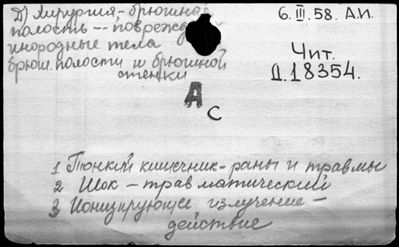 Д) Хирургия, - брюшная
полость -- поврежд
инородные тела
брюш. полости и брюшной
стенки
6. III. 58. А.И.
Чит.
Д. 18354.
А
С
1 Тонкий кишечник - раны и травмы
2 Шок - травматический
3 Ионизирующее излучение -
действие